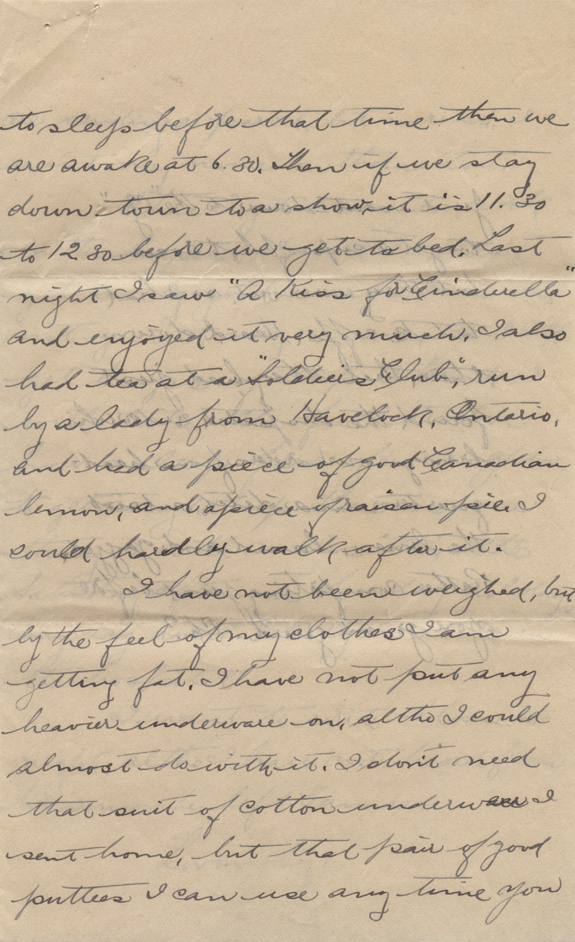 to sleep before that time then we
are awake at 6.30. Then if we stay
down town to a show, it is 11.30
to 12 30 before we get to bed. Last
night I saw "A Kiss for Cinderella"
and enjoyed it very much. I also
had tea at a "Soldiers Club", run
by a lady from Havelock, Ontario,
and had a piece of good Canadian
lemon, and apiece of raison pie. I
could hardly walk after it.
I have not been weighed, but
by the feel of my clothes I am
getting fat. I have not put any
heavier underware on, altho I could
almost do with it. I don't need
that suit of cotton underware I
sent home, but that pair of good
puttees I can use any time you